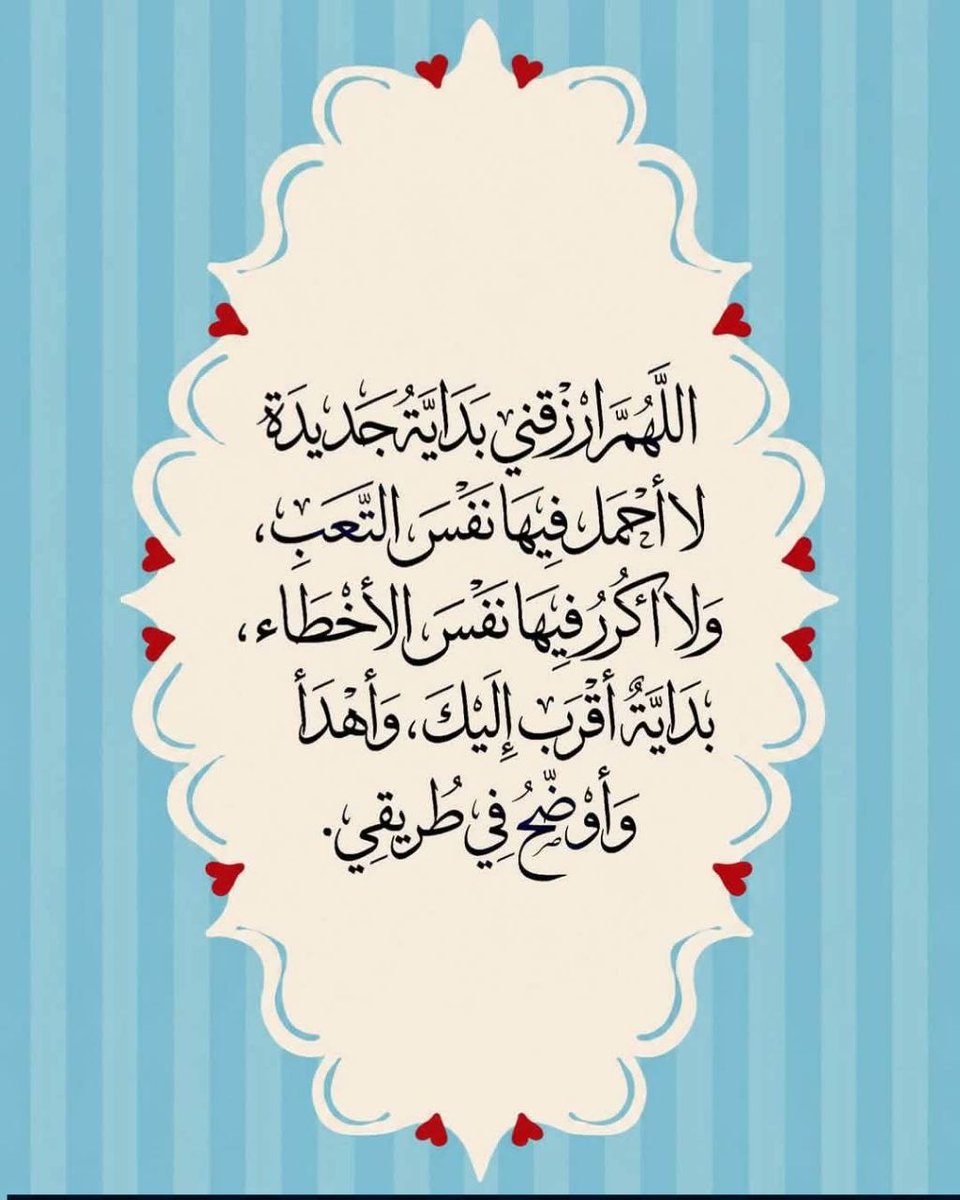 اللَّهُمَّ ارْزقني بَدَايَّةُ جَديدَة
لا أحْمَل فِيهَا نَفْسَ التَّعَبِ،
وَلا أكرُرُ فِيهَا نَفْسَ الأخْطَاء،
بَدَايَّةٌ أقْرَب إِلَيْكَ، وَأهْدَأ
وَأوْضّحُ فِي طُريقِي.